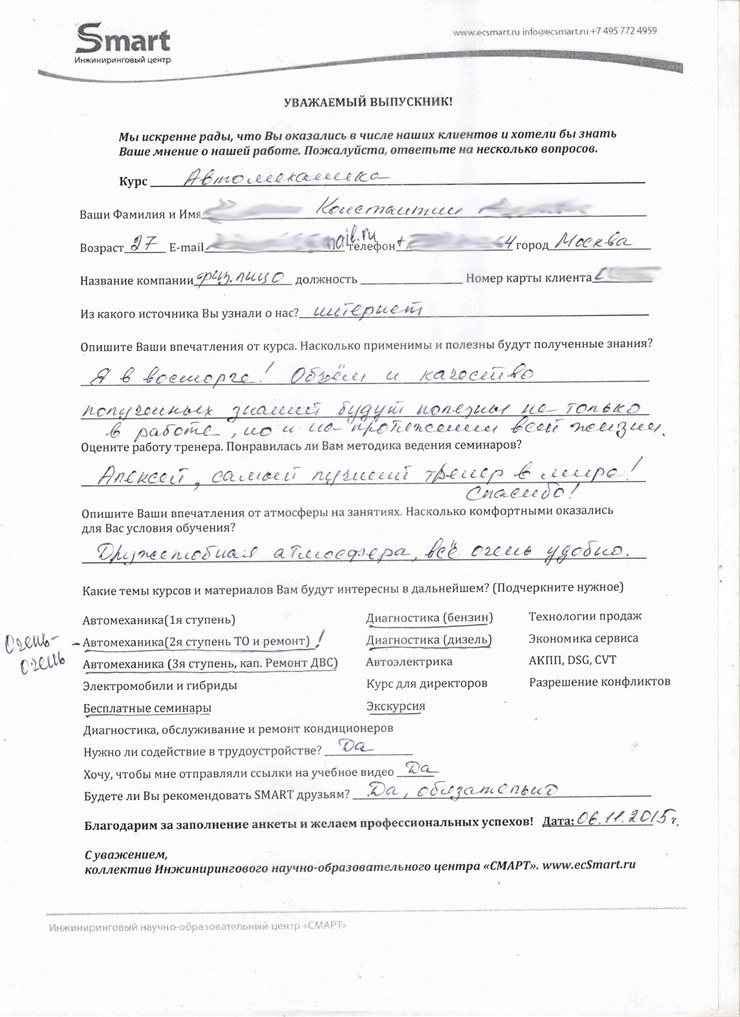 Smart
Инжиниринговый центр
www.ecsmart.ru info@ecsmart.ru +7 495 772 4959
УВАЖАЕМЫЙ ВЫПУСКНИК!
Мы искренне рады, что Вы оказались в числе наших клиентов и хотели бы знать
Ваше мнение о нашей работе. Пожалуйста, ответьте на несколько вопросов.
Курс Автомеханика
Ваши Фамилия и Имя Константин
Возраст 27 E-mail mail.ru телефон + 4 город Москва
Название компании физ.лицо должность Номер карты клиента
Из какого источника Вы узнали о нас? интернет
Опишите Ваши впечатления от курса. Насколько применимы и полезны будут полученные знания?
Я в восторге! Объём и качество
полученных знаний будут полезны не только
в работе, но и на протяжении всей жизни.
Оцените работу тренера. Понравилась ли Вам методика ведения семинаров?
Алексей, самый лучший тренер в мире!
Спасибо!
Опишите Ваши впечатления от атмосферы на занятиях. Насколько комфортными оказались
для Вас условия обучения?
Дружелюбная атмосфера, всё очень удобно.
Какие темы курсов и материалов Вам будут интересны в дальнейшем? (Подчеркните нужное)
Автомеханика(1я ступень) Диагностика (бензин) Технологии продаж
Очень-очень - Автомеханика(2я ступень ТО и ремонт) ! Диагностика (дизель) Экономика сервиса
Автомеханика (3я ступень, кап. Ремонт ДВС) Автоэлектрика АКПП, DSG, CVT
Электромобили и гибриды Курс для директоров Разрешение конфликтов
Бесплатные семинары Экскурсия
Диагностика, обслуживание и ремонт кондиционеров
Нужно ли содействие в трудоустройстве? Да
Хочу, чтобы мне отправляли ссылки на учебное видео Да
Будете ли Вы рекомендовать SMART друзьям? Да, обязательно
Благодарим за заполнение анкеты и желаем профессиональных успехов! Дата: 06.11.2015г.
С уважением,
коллектив Инжинирингового научно-образовательного центра «СМАРТ». www.ecSmart.ru
Инжиниринговый научно-образовательный центр «СМАРТ»